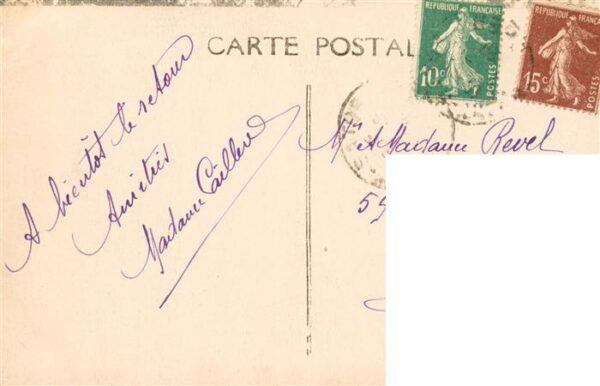 CARTE POSTAL
REPUBLIQUE FRANÇAISE
10c
POSTES
REPUBLIQUE FRANÇAISE
15c
POSTES
A bientôt le retour
Amitiés
Madame
Mr & Madame Revel